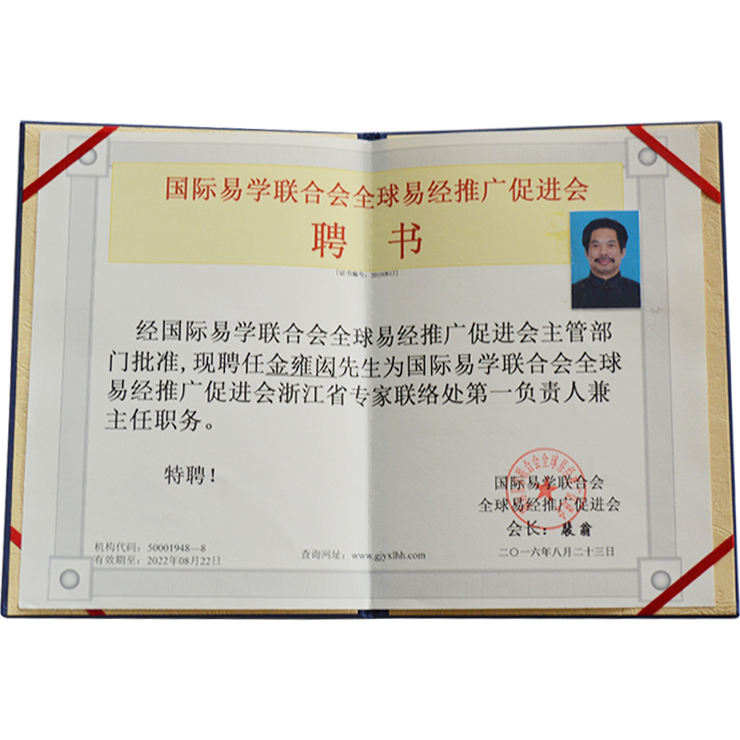 国际易学联合会全球易经推广促进会
聘 书
[证书编号：20160813]
经国际易学联合会全球易经推广促进会主管部
门批准,现聘任金雍闳先生为国际易学联合会全球
易经推广促进会浙江省专家联络处第一负责人兼
主任职务。
特聘！
国际易学联合会
全球易经推广促进会
会长：
二〇一六年八月二十三日
机构代码：50001948—8
有效期至：2022年08月22日
查询网址：www.gjyxlhh.com